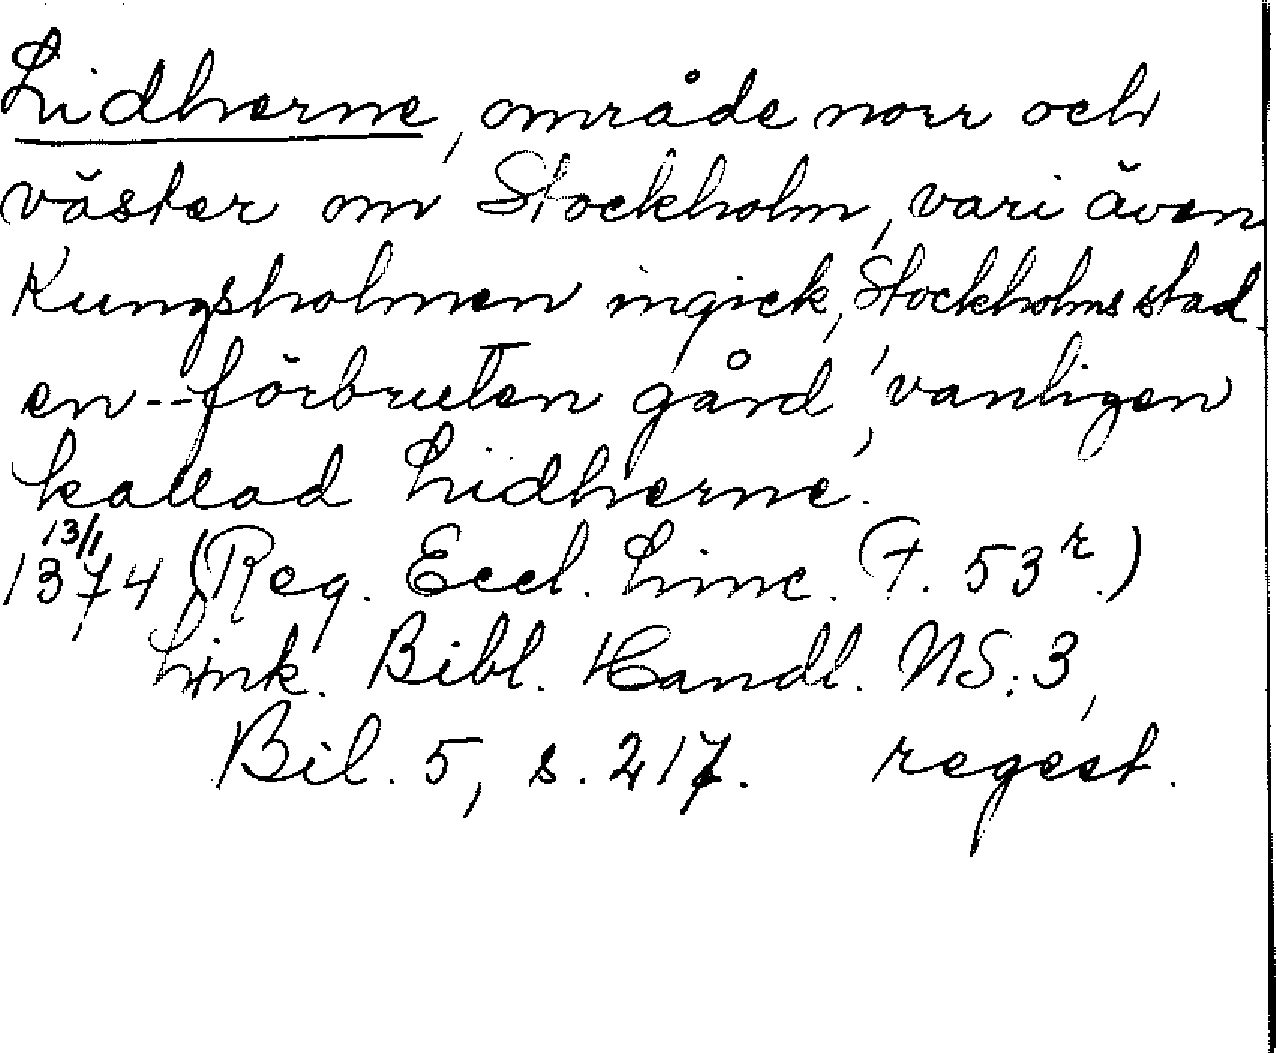 Lidherne, område norr och
väster om Stockholm, vari även
Kungsholmen ingick, Stockholms stad.
en--förbruten gård, vanligen
kallad Lidherne.
13/1
1374 (Reg. Eccl. Linc. (F. 53r.)
Link. Bibl. Handl. NS: 3,
Bil. 5, s. 217. regest.